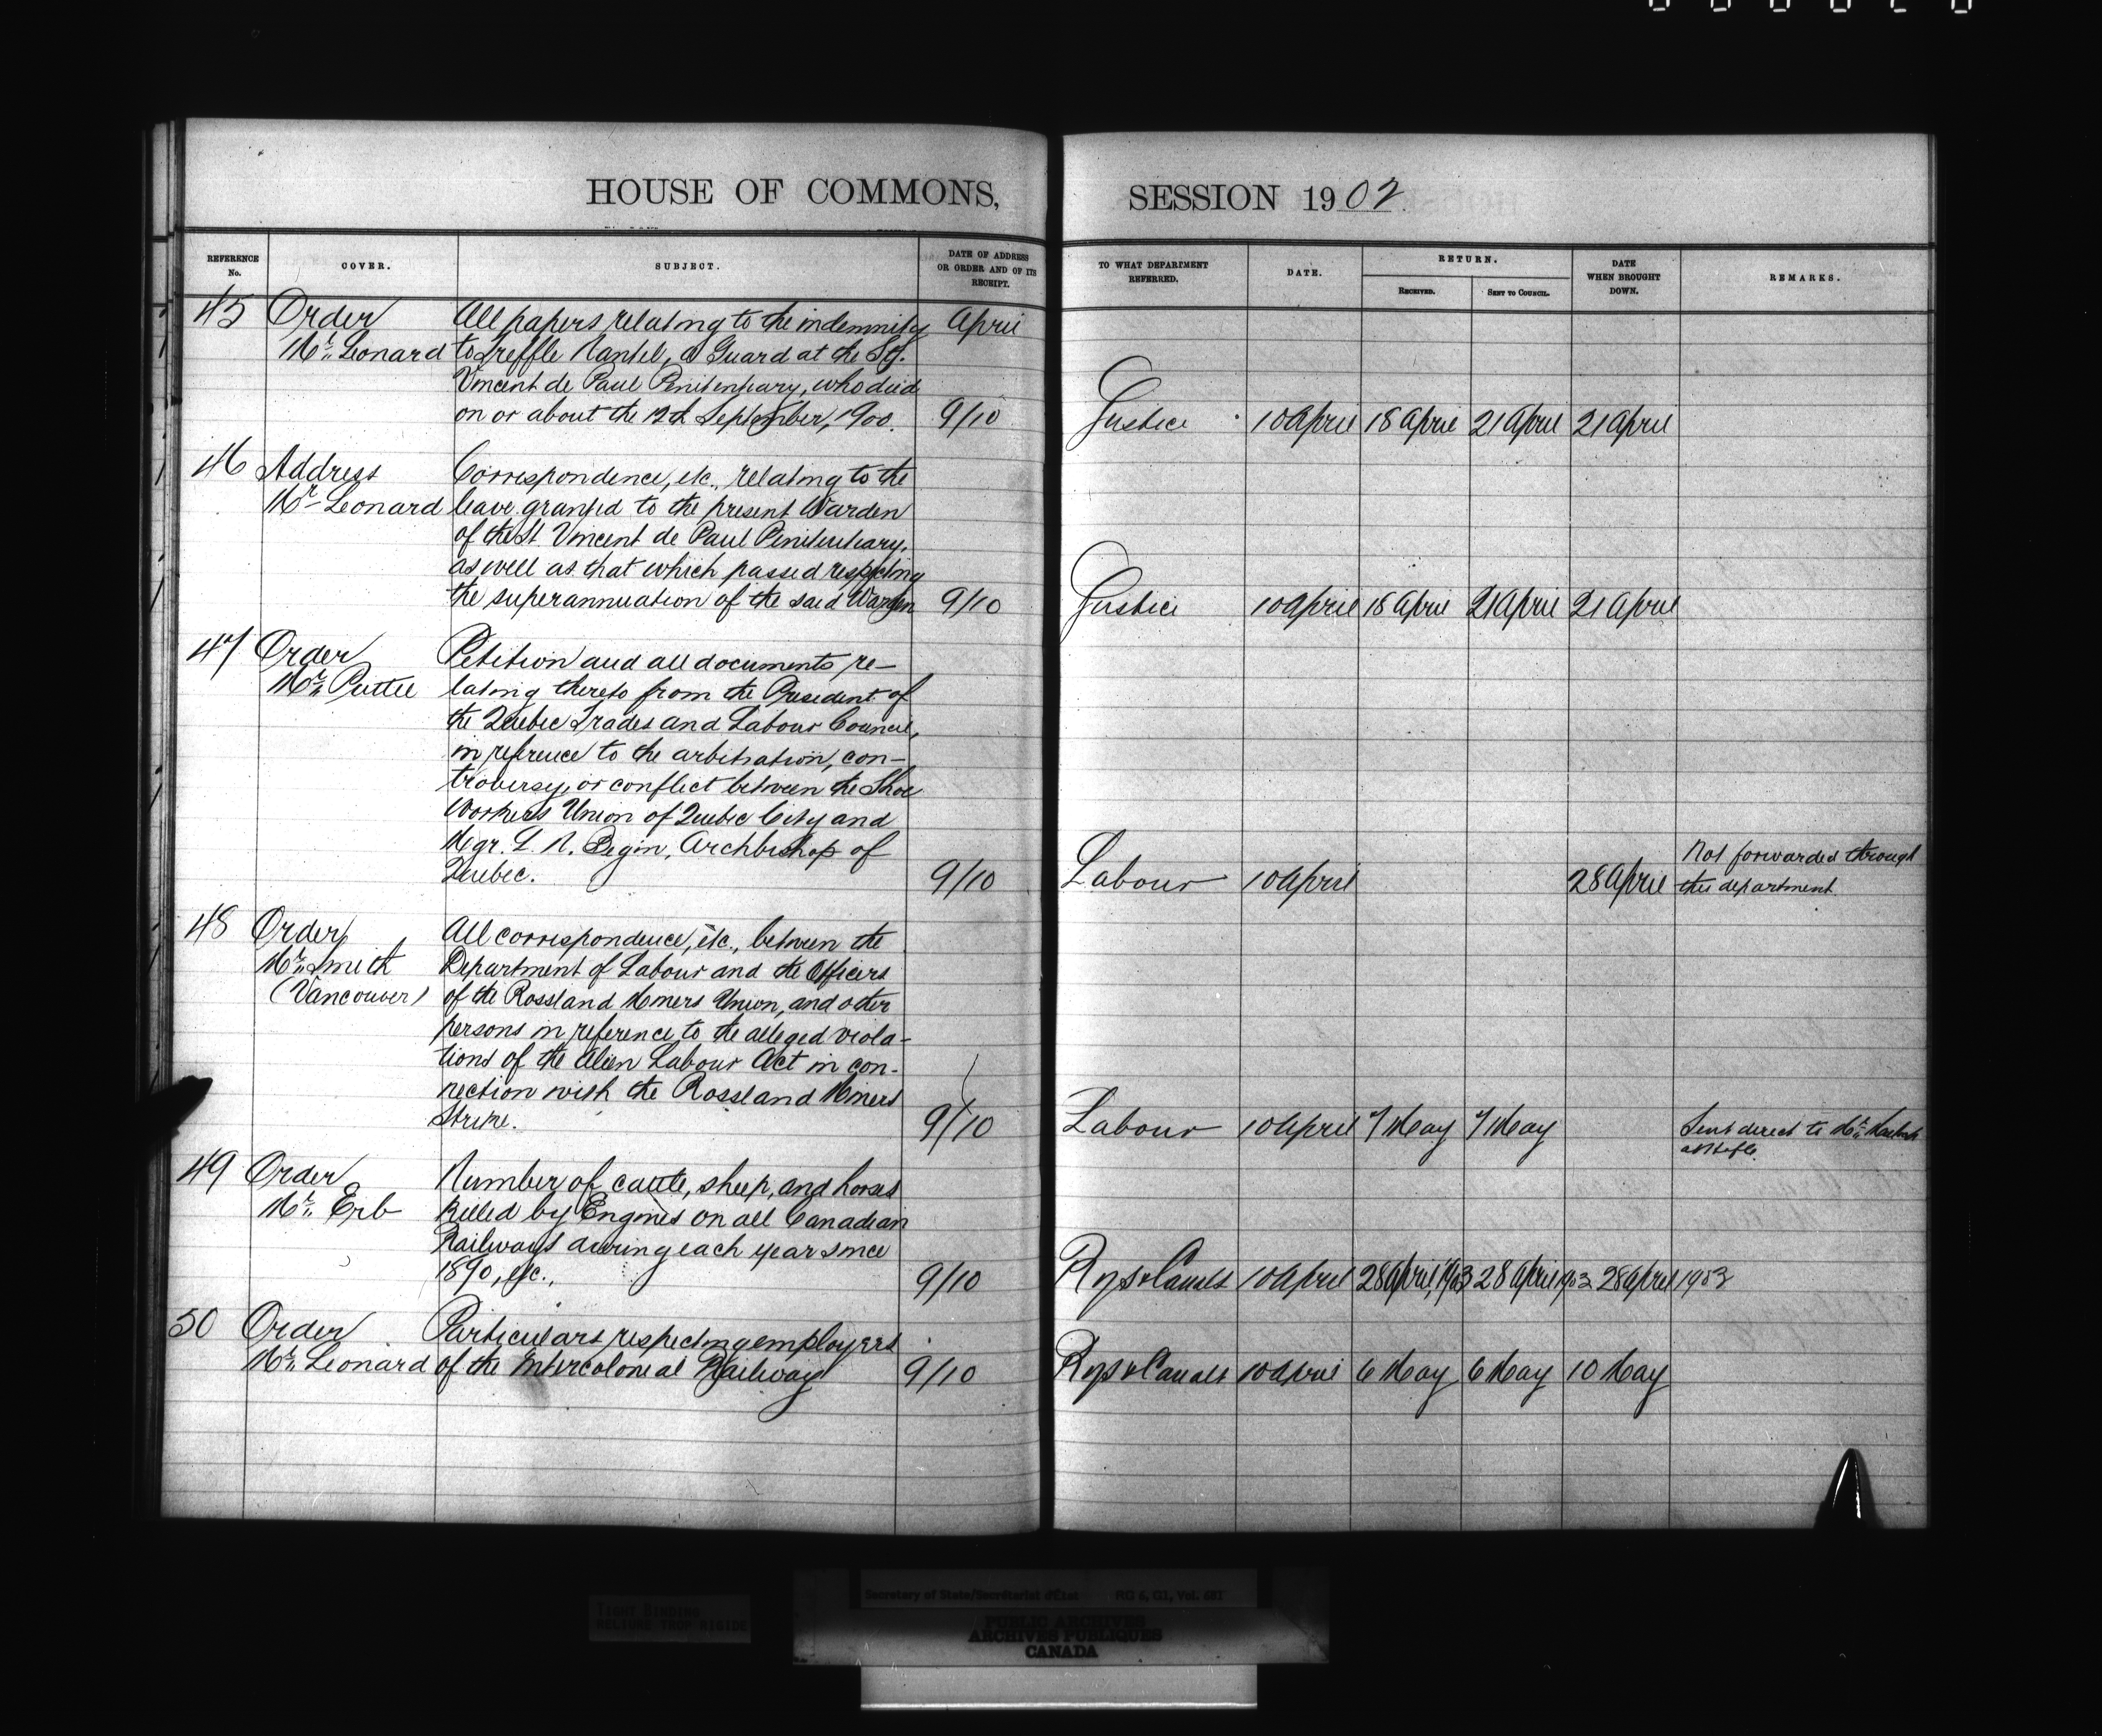 HOUSE OF COMMONS,
SESSION 1902
REFERENCE No.
COVER.
SUBJECT.
DATE OF ADDRESS OR ORDER AND OF ITS RECEIPT.
TO WHAT DEPARTMENT REFERRED.
DATE.
RETURN.
RECEIVED.
SENT TO COUNCIL.
DATE WHEN BROUGHT DOWN.
REMARKS.
45 Order All papers relating to the indemnity April
Mr. Leonard to Treffle Nantel, a Guard at the St.
Vincent de Paul Penitentiary, who died
on or about the 12th September, 1900. 9/10 Justice 10 April 18 April 21 April 21 April
46 Address Correspondence, etc., relating to the
Mr. Leonard leave granted to the present Warden
of the St Vincent de Paul Penitentiary,
as well as that which passed respecting
the superannuation of the said Warden 9/10 Justice 10 April 18 April 21 April 21 April
47 Order Petition and all documents re-
Mr. Puttee lating thereto from the President of
the Quebec Trades and Labour Council,
in reference to the arbitration, con-
troversy, or conflict between the Shoe
Workers Union of Quebec City and
Mgr. L. N. Begin, Archbishop of Not forwarded through
Quebec. 9/10 Labour 10 April 28 April this department
48 Order All correspondence, etc., between the
Mr. Smith Department of Labour and the Officers
(Vancouver) of the Rossland Miners Union, and other
persons in reference to the alleged viola-
tions of the Alien Labour Act in con-
nection with the Rossland Miners
Strike. 9/10 Labour 10 April 7 May 7 May Sent direct to Mr.
49 Order Number of cattle, sheep, and horses
Mr. Erb killed by Engines on all Canadian
Railways during each year since
1890, etc., 9/10 Rys & Canals 10 April 28 April, 1903 28 April 1903 28 April 1903
50 Order Particulars respecting employees
Mr. Leonard of the Intercolonial Railway 9/10 Rys & Canals 10 April 6 May 6 May 10 May
TIGHT BINDING
RELIURE TROP RIGIDE
Secretary of State/Secrétariat d'État RG 6, G1, Vol. 681
PUBLIC ARCHIVES
ARCHIVES PUBLIQUES
CANADA